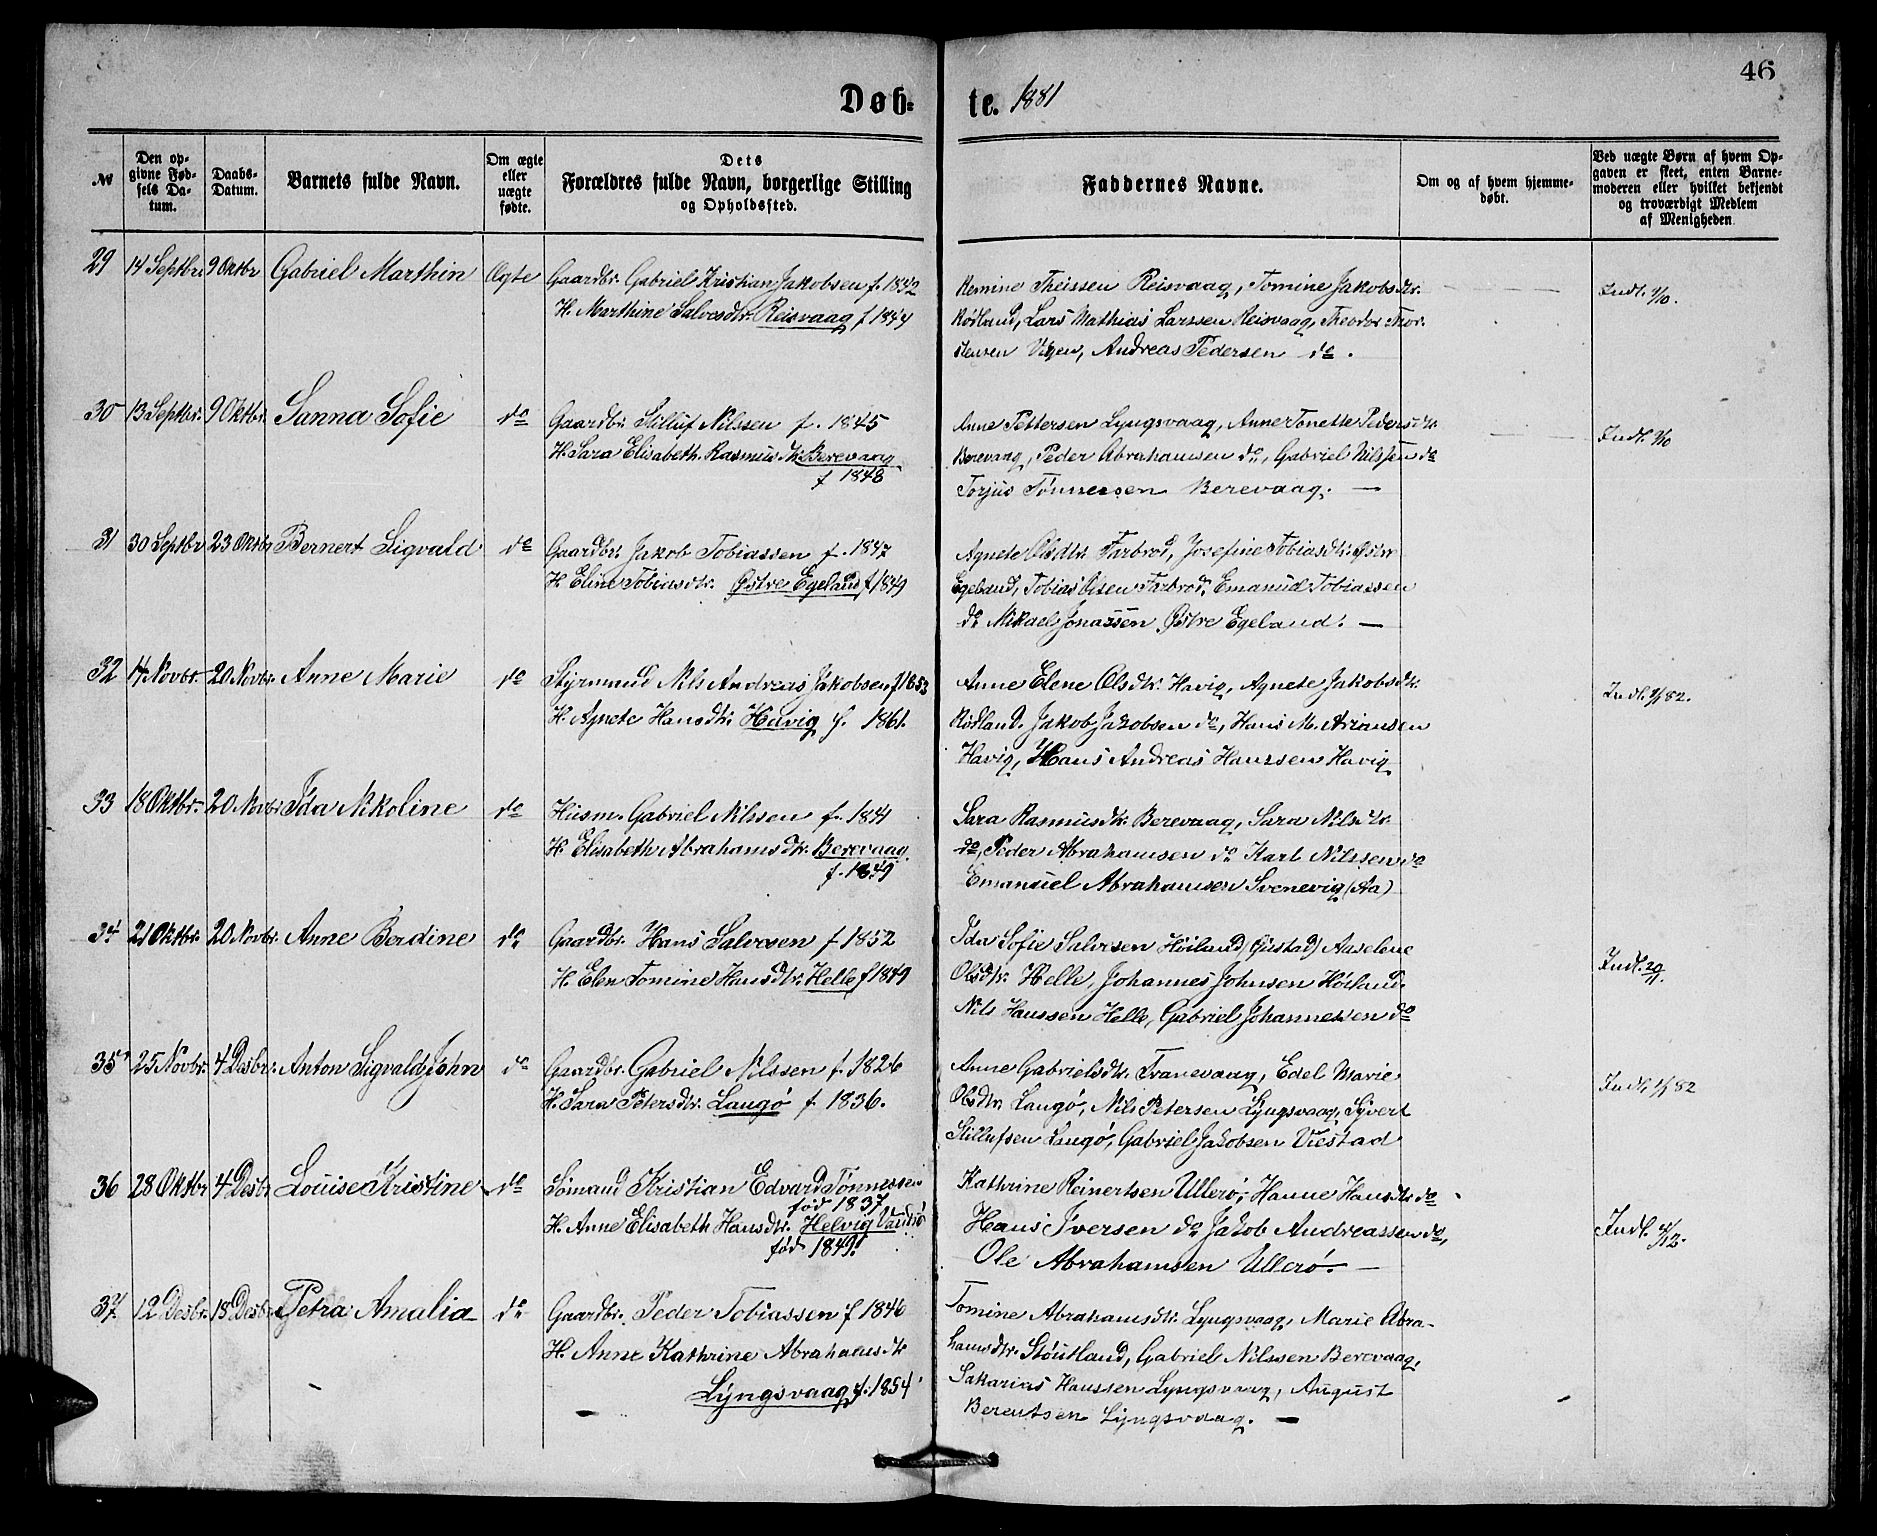 46
Døb- te. 1881
№
Den op-
givne Fød-
sels Da-
tum.
Daabs-
Datum.
Barnets fulde Navn.
Om ægte
eller
uægte
fødte.
Dets
Forældres fulde Navn, borgerlige Stilling
og Opholdssted.
Faddernes Navne.
Om og af hvem hjemme-
døbt.
Ved uægte Børn af hvem Op-
gaven er skeet, enten Barne-
moderen eller hvilket bekjendt
og troværdigt Medlem
af Menigheden.
29 14 Septbr. 9 Oktbr Gabriel Marthin Ægte
Gaardbr. Gabriel Kristian Jakobsen f. 1842
H. Marthine Salvesdtr. Reisvaag f 1844
Theissen Reisvaag, Tomine Jakobsdtr.
Rødland, Lars Mathias Larssen Reisvaag, Theodor Thor-
stensen Vigen, Andreas Pedersen do.
Indl. 9/10.
30 13 Septbr. 9 Oktbr. Sanna Sofie do
Gaardbr. Stilluf Nilssen f. 1845
H. Sara Elisabeth Rasmusdtr. Berevaag
f 1848
Anne Pettersen Lyngsvaag, Anne Tonette Pedersdtr.
Berevaag, Peder Abrahamsen do, Gabriel Nilssen do
Torjus Tønnessen Berevaag. —
Indl. 9/10
31 30 Septbr 23 Oktbr Bernert Sigvald do
Gaardbr. Jakob Tobiassen f. 1847
H. Eline Tobiasdtr. Østre Egeland f 1849
Agnete Olsdtr. Farbrod, Josefine Tobiasdtr. Østre
Egeland, Tobias Olsen Farbrod, Emanuel Tobiassen
do Mikael Jonassen Østre Egeland. —
32 14 Novbr. 20 Novbr. Anne Marie do
Styrmand Nils Andreas Jakobsen f 1852
H. Agnete Hansdtr. Havig f. 1861.
Anne Elene Olsdtr. Havig, Agnete Jakobsdtr.
Rødland, Jakob Jakobsen do, Hans M. Ariansen
Havig, Hans Andreas Hanssen Havig
33 18 Oktbr. 20 Novbr. Ida Nikoline do
Husm. Gabriel Nilssen f. 1841
H. Elisabeth Abrahamsdtr. Berevaag
f. 1849
Sara Rasmusdtr. Berevaag, Sara Nilsdtr.
do, Peder Abrahamsen do Karl Nilssen do
Emanuel Abrahamsen Svenevig (Aa)
34 21 Oktbr. 20 Novbr. Anne Berdine do
Gaardbr. Hans Salvesen f 1852
H. Elen Tomine Hansdtr. Helle f 1849
Ida Sofie Salvesen Høiland (Gustad) Aaselene
Olsdtr. Helle, Johannes Johnsen Høiland,
Nils Hanssen Helle, Gabriel Johannessen do
35 25 Novbr. 4 Desbr. Anton Sigvald John do
Gaardbr. Gabriel Nilssen f. 1826
H. Sara Petersdtr. Langø f 1836.
Anne Gabrielsdtr. Tranevaag, Edel Marie
Olsdtr Langø, Nils Petersen Lyngsvaag, Syvert
Stillufsen Langø, Gabriel Jakobsen Viestad
36 28 Oktbr 4 Desbr Louise Kristine do
Sømand Kristian Edvard Tønnessen
fød 1837
H. Anne Elisabeth Hansdtr. Helvig Vansø
fød 1849.
Kathrine Reinertsen Ullerø, Hanne Hansdtr. do
Hans Iversen do Jakob Andreassen do,
Ole Abrahamsen Ullerø. —
Indl. 4/12.
37. 12 Desbr. 18 Desbr. Petra Amalia do
Gaardbr. Peder Tobiassen f 1846
H. Anne Kathrine Abrahamsdtr
Lyngsvaag f. 1854
Tomine Abrahamsdtr. Lyngsvaag, Marie Abra-
hamsdtr. Støutland, Gabriel Nilssen Berevaag,
Sakarias Hanssen Lyngsvaag, August
Berentsen Lyngsvaag. —